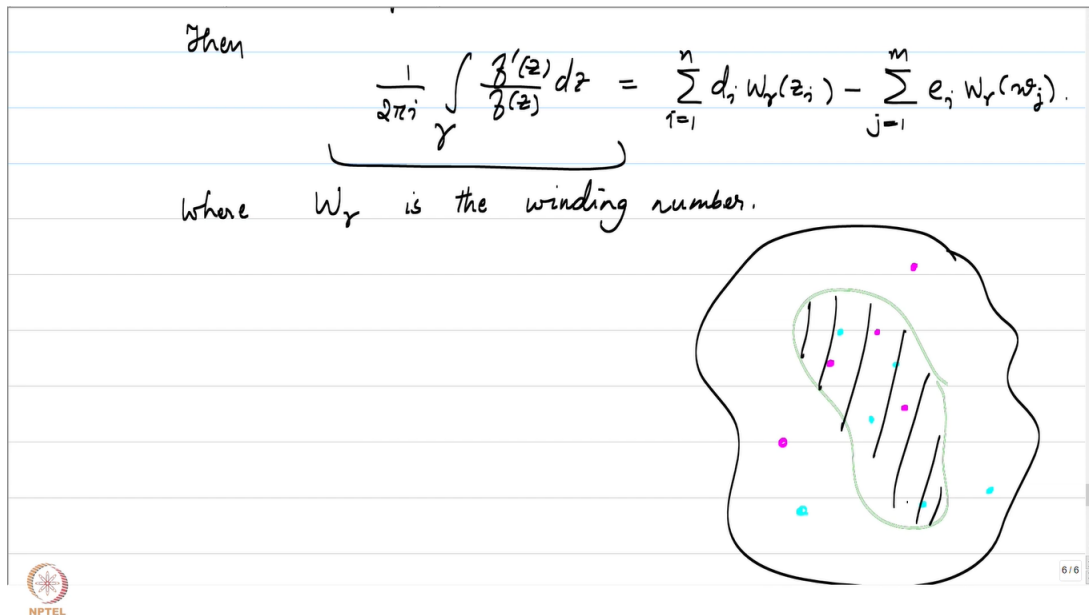 Then
1/2πi ∫_γ f'(z)/f(z) dz = ∑_{i=1}^{n} d_i W_γ(z_i) − ∑_{j=1}^{m} e_j W_γ(w_j).
where W_γ is the winding number.
6/6
NPTEL